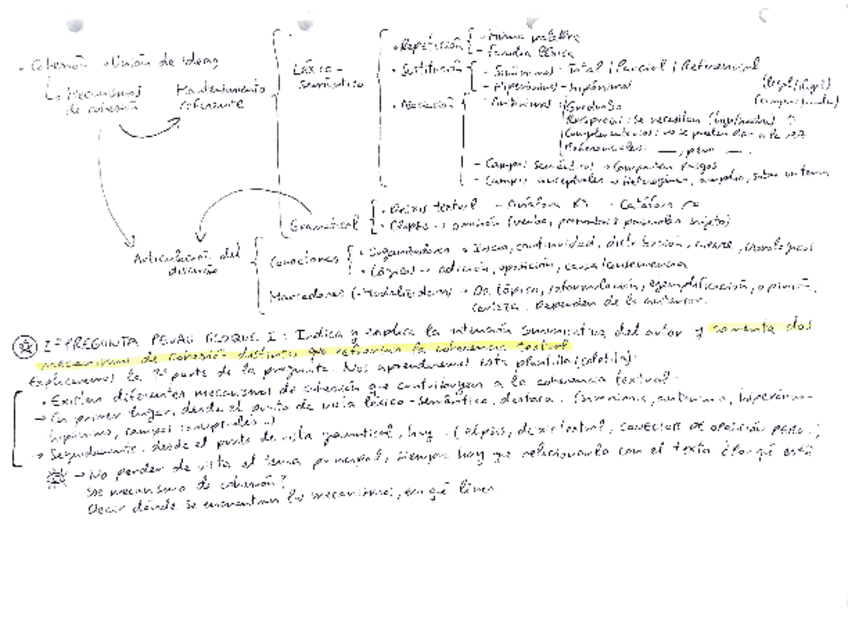 • Cohesión → Unión de ideas
↳ Mecanismos de cohesión
Mantenimiento referente
Léxico-semántico
• Repetición
- Misma palabra
- Familia léxica
• Sustitución
- Sinónimos → Total / Parcial / Referencial
- Hiperónimos - hipónimos
• Asociación
- Antónimos
Graduales
Recíprocos: se necesitan
Complementarios: no se pueden dar a la vez
Referenciales: ___, pero ___.
(legal/ilegal)
- Campos semánticos → Comparten rasgos
- Campos conceptuales → Heterogéneo, amplio, sobre un tema
Gramatical
• Deixis textual → Anáfora • Catáfora
• Elipsis → omisión (verbo, pronombres personales sujeto)
Articulación del discurso
Conectores
• Organizadores → Inicio, continuidad, distribución, cierre, cronológicos
• Lógicos → adición, oposición, causa/consecuencia
Marcadores (-Modalizadores) → De tópico, reformulación, ejemplificación, opinión,
certeza. Dependen de
2ª PREGUNTA PEVAU BLOQUE I: Indica y explica la intención comunicativa del autor y comenta dos
mecanismos de cohesión distintos que refuerzan la coherencia textual.
Explicaremos la 2ª parte de la pregunta. Nos aprenderemos esta plantilla (coletilla):
• Existen diferentes mecanismos de cohesión que contribuyen a la coherencia textual.
→ En primer lugar, desde el punto de vista léxico-semántico, destaca. (sinonimia, antonimia, hiperónimo-
hipónimo, campos conceptuales...)
→ Seguidamente, desde el punto de vista gramatical, hay. (elipsis, deixis textual, CONECTOR DE OPOSICIÓN PERO...)
→ No perder de vista el tema principal, siempre hay que relacionarlo con el texto ¿Por qué está
ese mecanismo de cohesión?
Decir dónde se encuentran los mecanismos, en qué línea